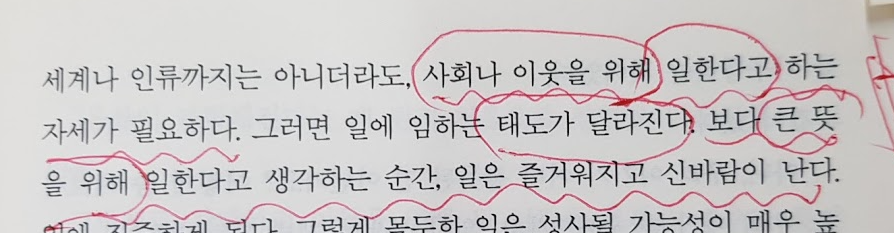 세계나 인류까지는 아니더라도, 사회나 이웃을 위해 일한다고 하는
자세가 필요하다. 그러면 일에 임하는 태도가 달라진다. 보다 큰 뜻
을 위해 일한다고 생각하는 순간, 일은 즐거워지고 신바람이 난다.
일에 집중하게 된다. 그렇게 몰두한 일은 성사될 가능성이 매우 높